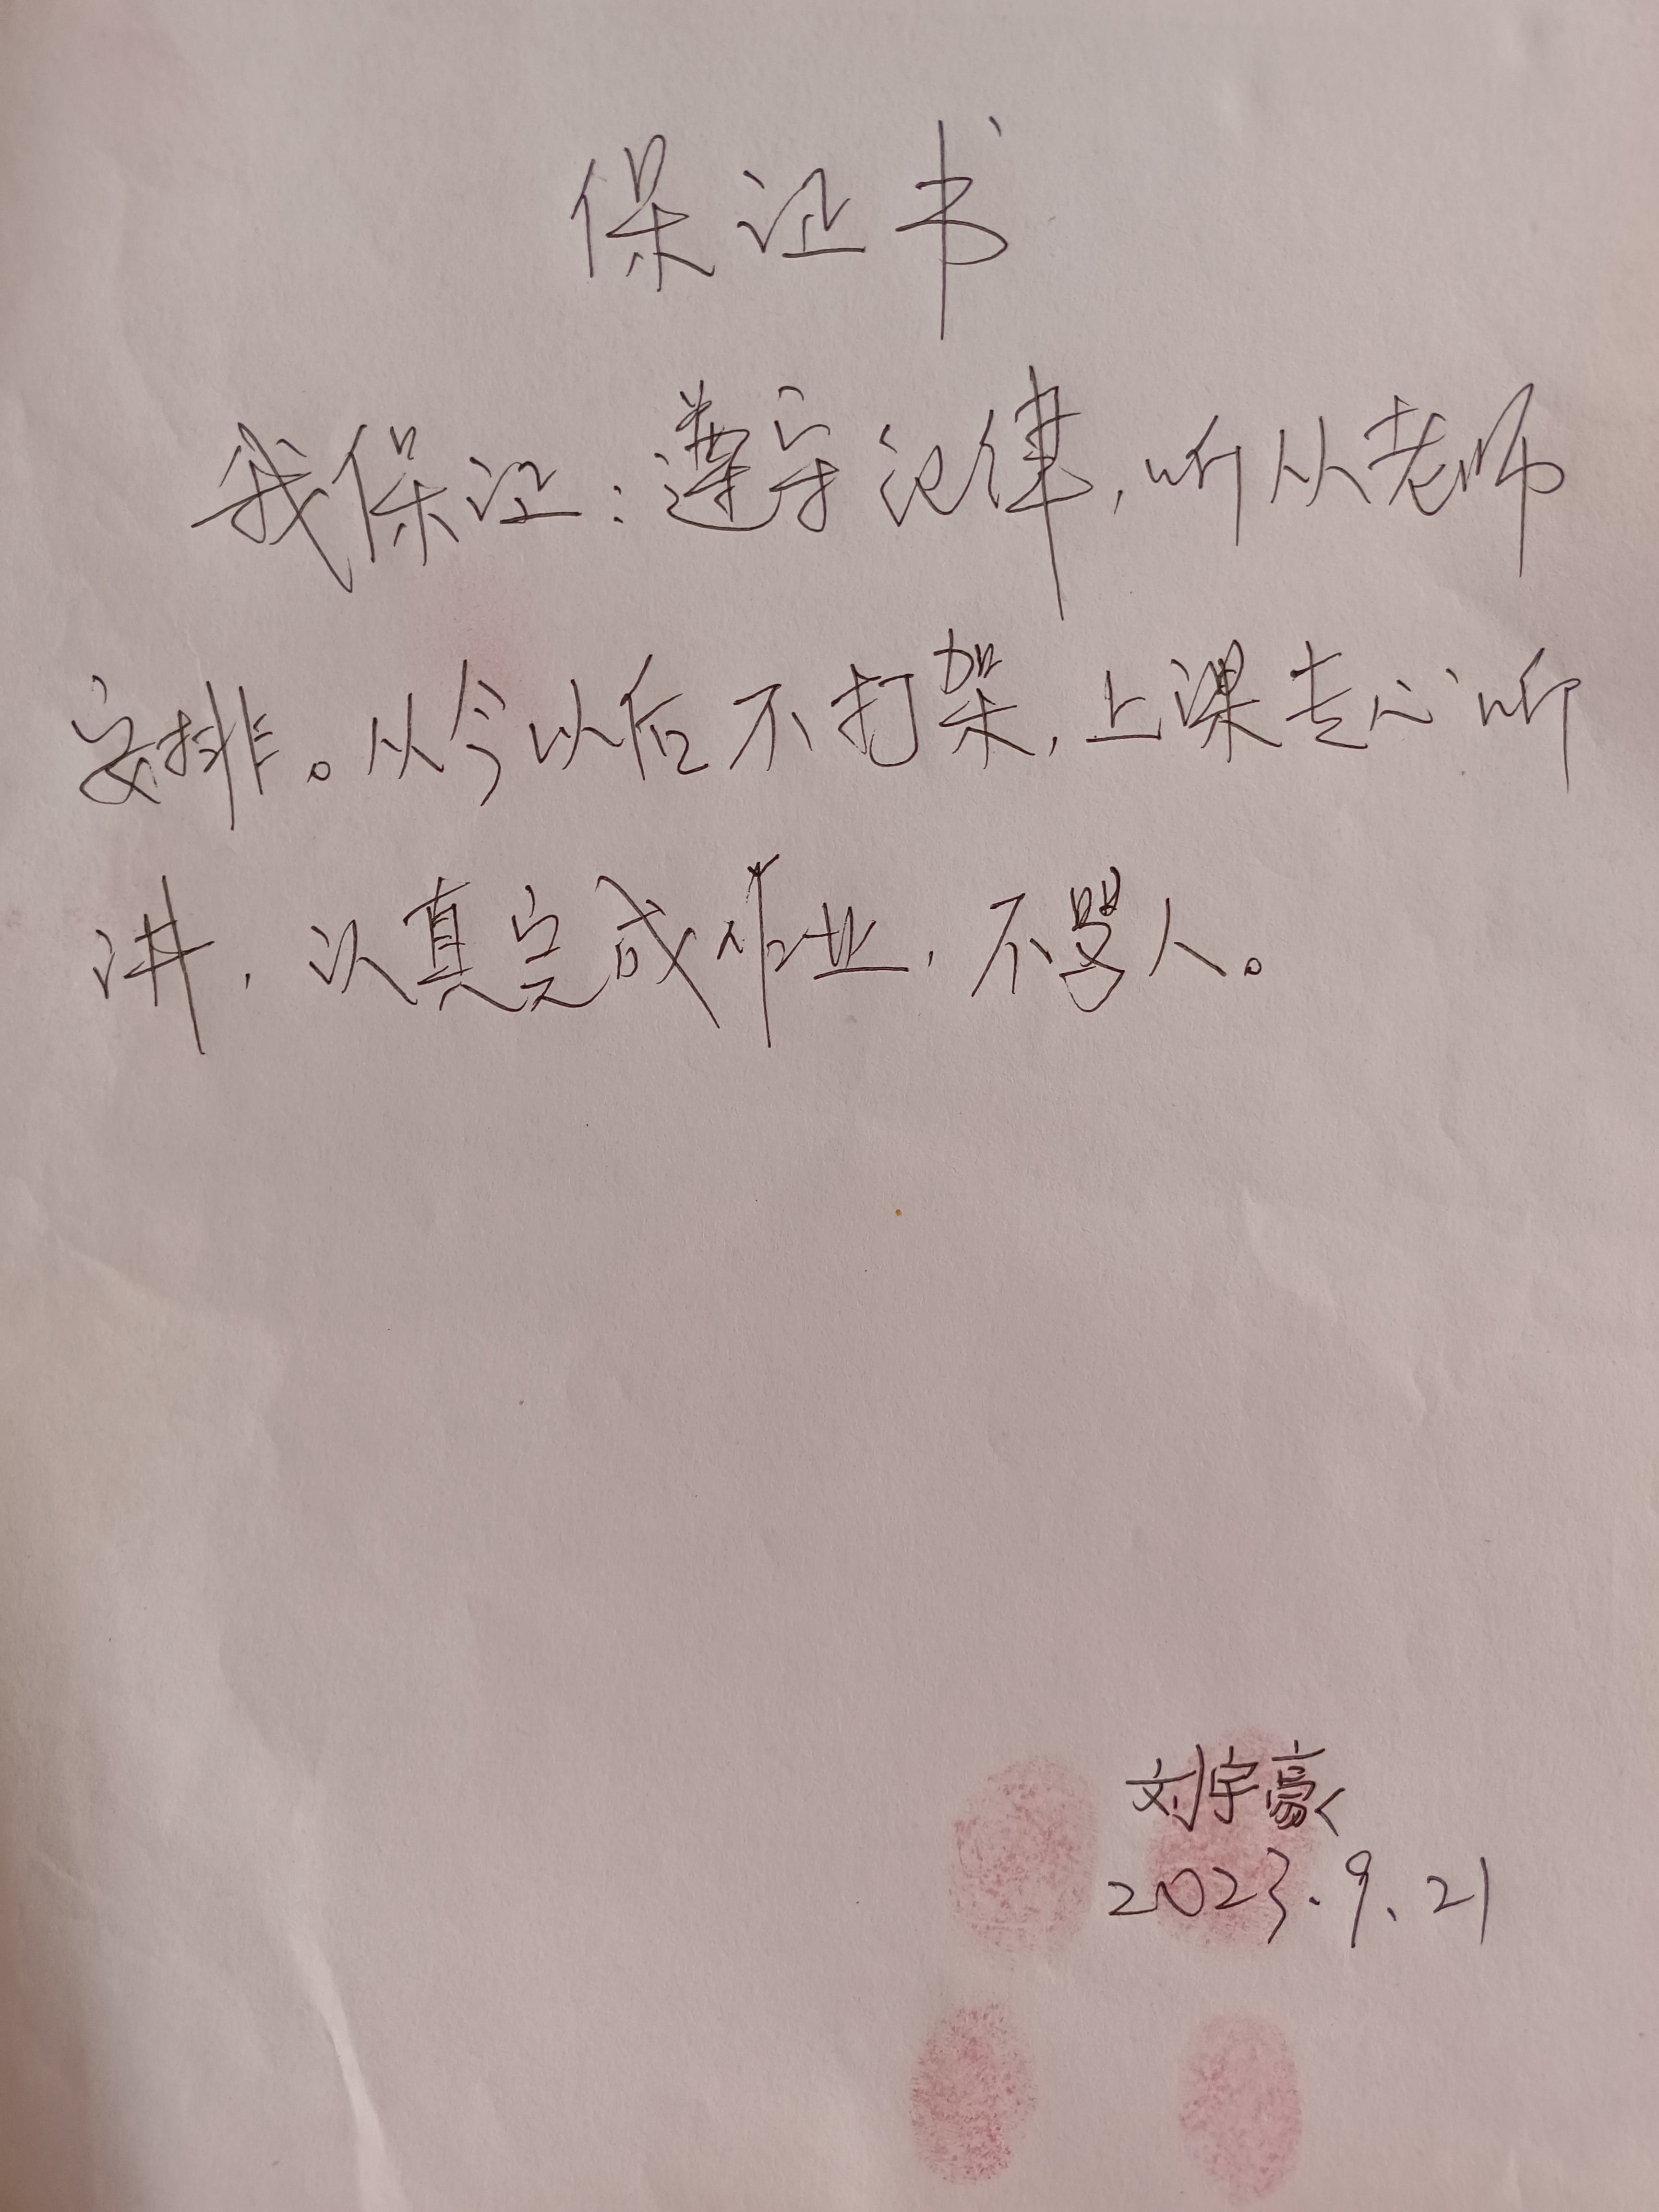 保证书
我保证:遵守纪律,听从老师
安排。从今以后不打架,上课专心听
讲,认真完成作业,不骂人。
刘宇豪
2023.9.21